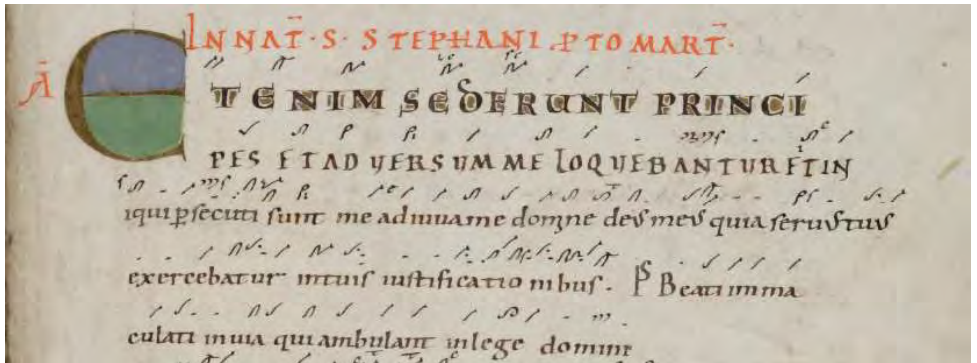 IN NAT̄ · S · STEPHANI PTOMART̄ ·
Ā ETENIM SEDERUNT PRINCI
PES ET ADVERSUM ME LOQUEBANTUR ET IN
iqui ꝑsecuti sunt me adiuua me domne deus meus quia seruus tuus
exercebatur intuis iustificationibus. PS Beati imma
culati inuia qui ambulant inlege domini